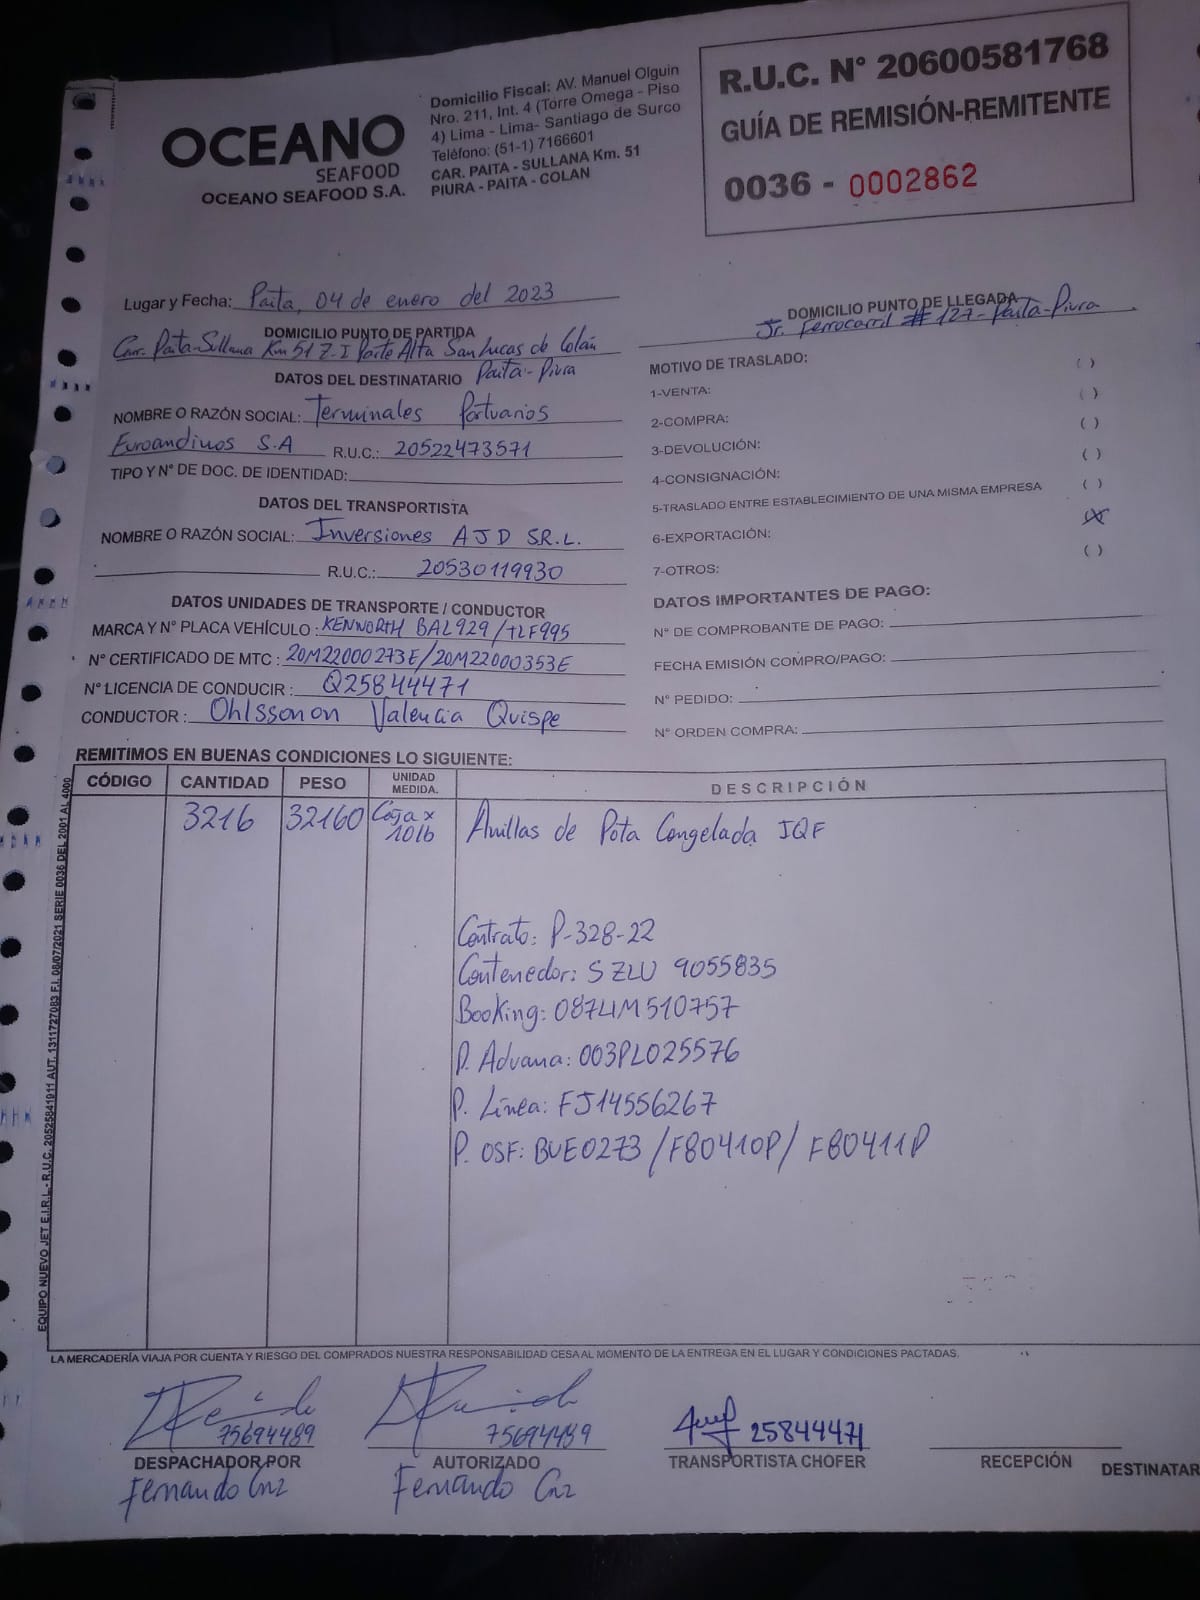 OCEANO
SEAFOOD
OCEANO SEAFOOD S.A.
Domicilio Fiscal: AV. Manuel Olguin
Nro. 211, Int. 4 (Torre Omega - Piso
4) Lima - Lima- Santiago de Surco
Teléfono: (51-1) 7166601
CAR. PAITA - SULLANA Km. 51
PIURA - PAITA - COLAN
R.U.C. N° 20600581768
GUÍA DE REMISIÓN-REMITENTE
0036 - 0002862
Lugar y Fecha: Paita, 04 de enero del 2023
DOMICILIO PUNTO DE PARTIDA
Carr. Paita-Sullana Km 51 Z-I Parte Alta San Lucas de Colán
Paita-Piura
DOMICILIO PUNTO DE LLEGADA
Jr. Ferrocarril # 127-Paita-Piura
DATOS DEL DESTINATARIO
NOMBRE O RAZÓN SOCIAL: Terminales Portuarios
Euroandinos S.A R.U.C.: 20522473571
TIPO Y N° DE DOC. DE IDENTIDAD:
DATOS DEL TRANSPORTISTA
NOMBRE O RAZÓN SOCIAL: Inversiones AJD S.R.L.
R.U.C.: 20530119930
DATOS UNIDADES DE TRANSPORTE / CONDUCTOR
MARCA Y N° PLACA VEHÍCULO: KENWORTH BAL929/TLF995
N° CERTIFICADO DE MTC: 20M22000273E/20M22000353E
N° LICENCIA DE CONDUCIR: Q25844471
CONDUCTOR: Ohlssonon Valencia Quispe
MOTIVO DE TRASLADO: ( )
1-VENTA: ( )
2-COMPRA: ( )
3-DEVOLUCIÓN: ( )
4-CONSIGNACIÓN: ( )
5-TRASLADO ENTRE ESTABLECIMIENTO DE UNA MISMA EMPRESA
6-EXPORTACIÓN: (X)
7-OTROS: ( )
DATOS IMPORTANTES DE PAGO:
N° DE COMPROBANTE DE PAGO:
FECHA EMISIÓN COMPRO/PAGO:
N° PEDIDO:
N° ORDEN COMPRA:
REMITIMOS EN BUENAS CONDICIONES LO SIGUIENTE:
CÓDIGO CANTIDAD PESO UNIDAD MEDIDA. DESCRIPCIÓN
3216 32160 Caja x 10lb Anillas de Pota Congelada IQF
Contrato: P-328-22
Contenedor: SZLU 9055835
Booking: 0874LM510757
P. Aduana: 003PL025576
P. Línea: FJ14556267
P. OSF: BUE0273/F80410P/F80411P
EQUIPO NUEVO JET E.I.R.L.- R.U.C. 20525841911 AUT. 1311727083 F.I. 08/07/2021 SERIE 0036 DEL 2001 AL 4000
LA MERCADERÍA VIAJA POR CUENTA Y RIESGO DEL COMPRADOS NUESTRA RESPONSABILIDAD CESA AL MOMENTO DE LA ENTREGA EN EL LUGAR Y CONDICIONES PACTADAS.
75694489
DESPACHADOR POR
Fernando Cruz
75694489
AUTORIZADO
Fernando Cruz
25844471
TRANSPORTISTA CHOFER
RECEPCIÓN DESTINATAR